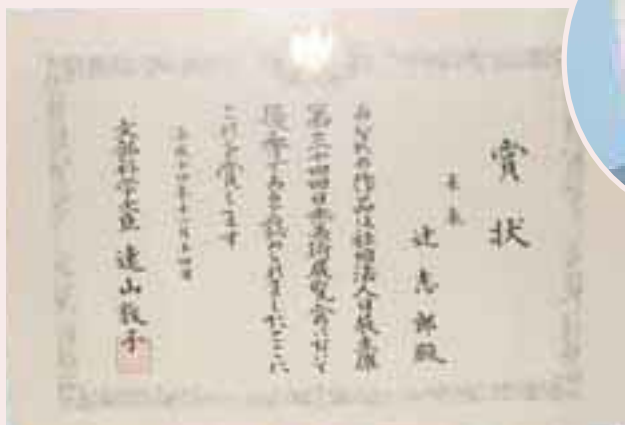 賞状
志郎殿
あなたの作品は社団法人日展主催
第三十四回日本美術展覧会において
優秀であると認められました ここに
これを賞します
平成十四年
文部科学大臣 遠山敦子